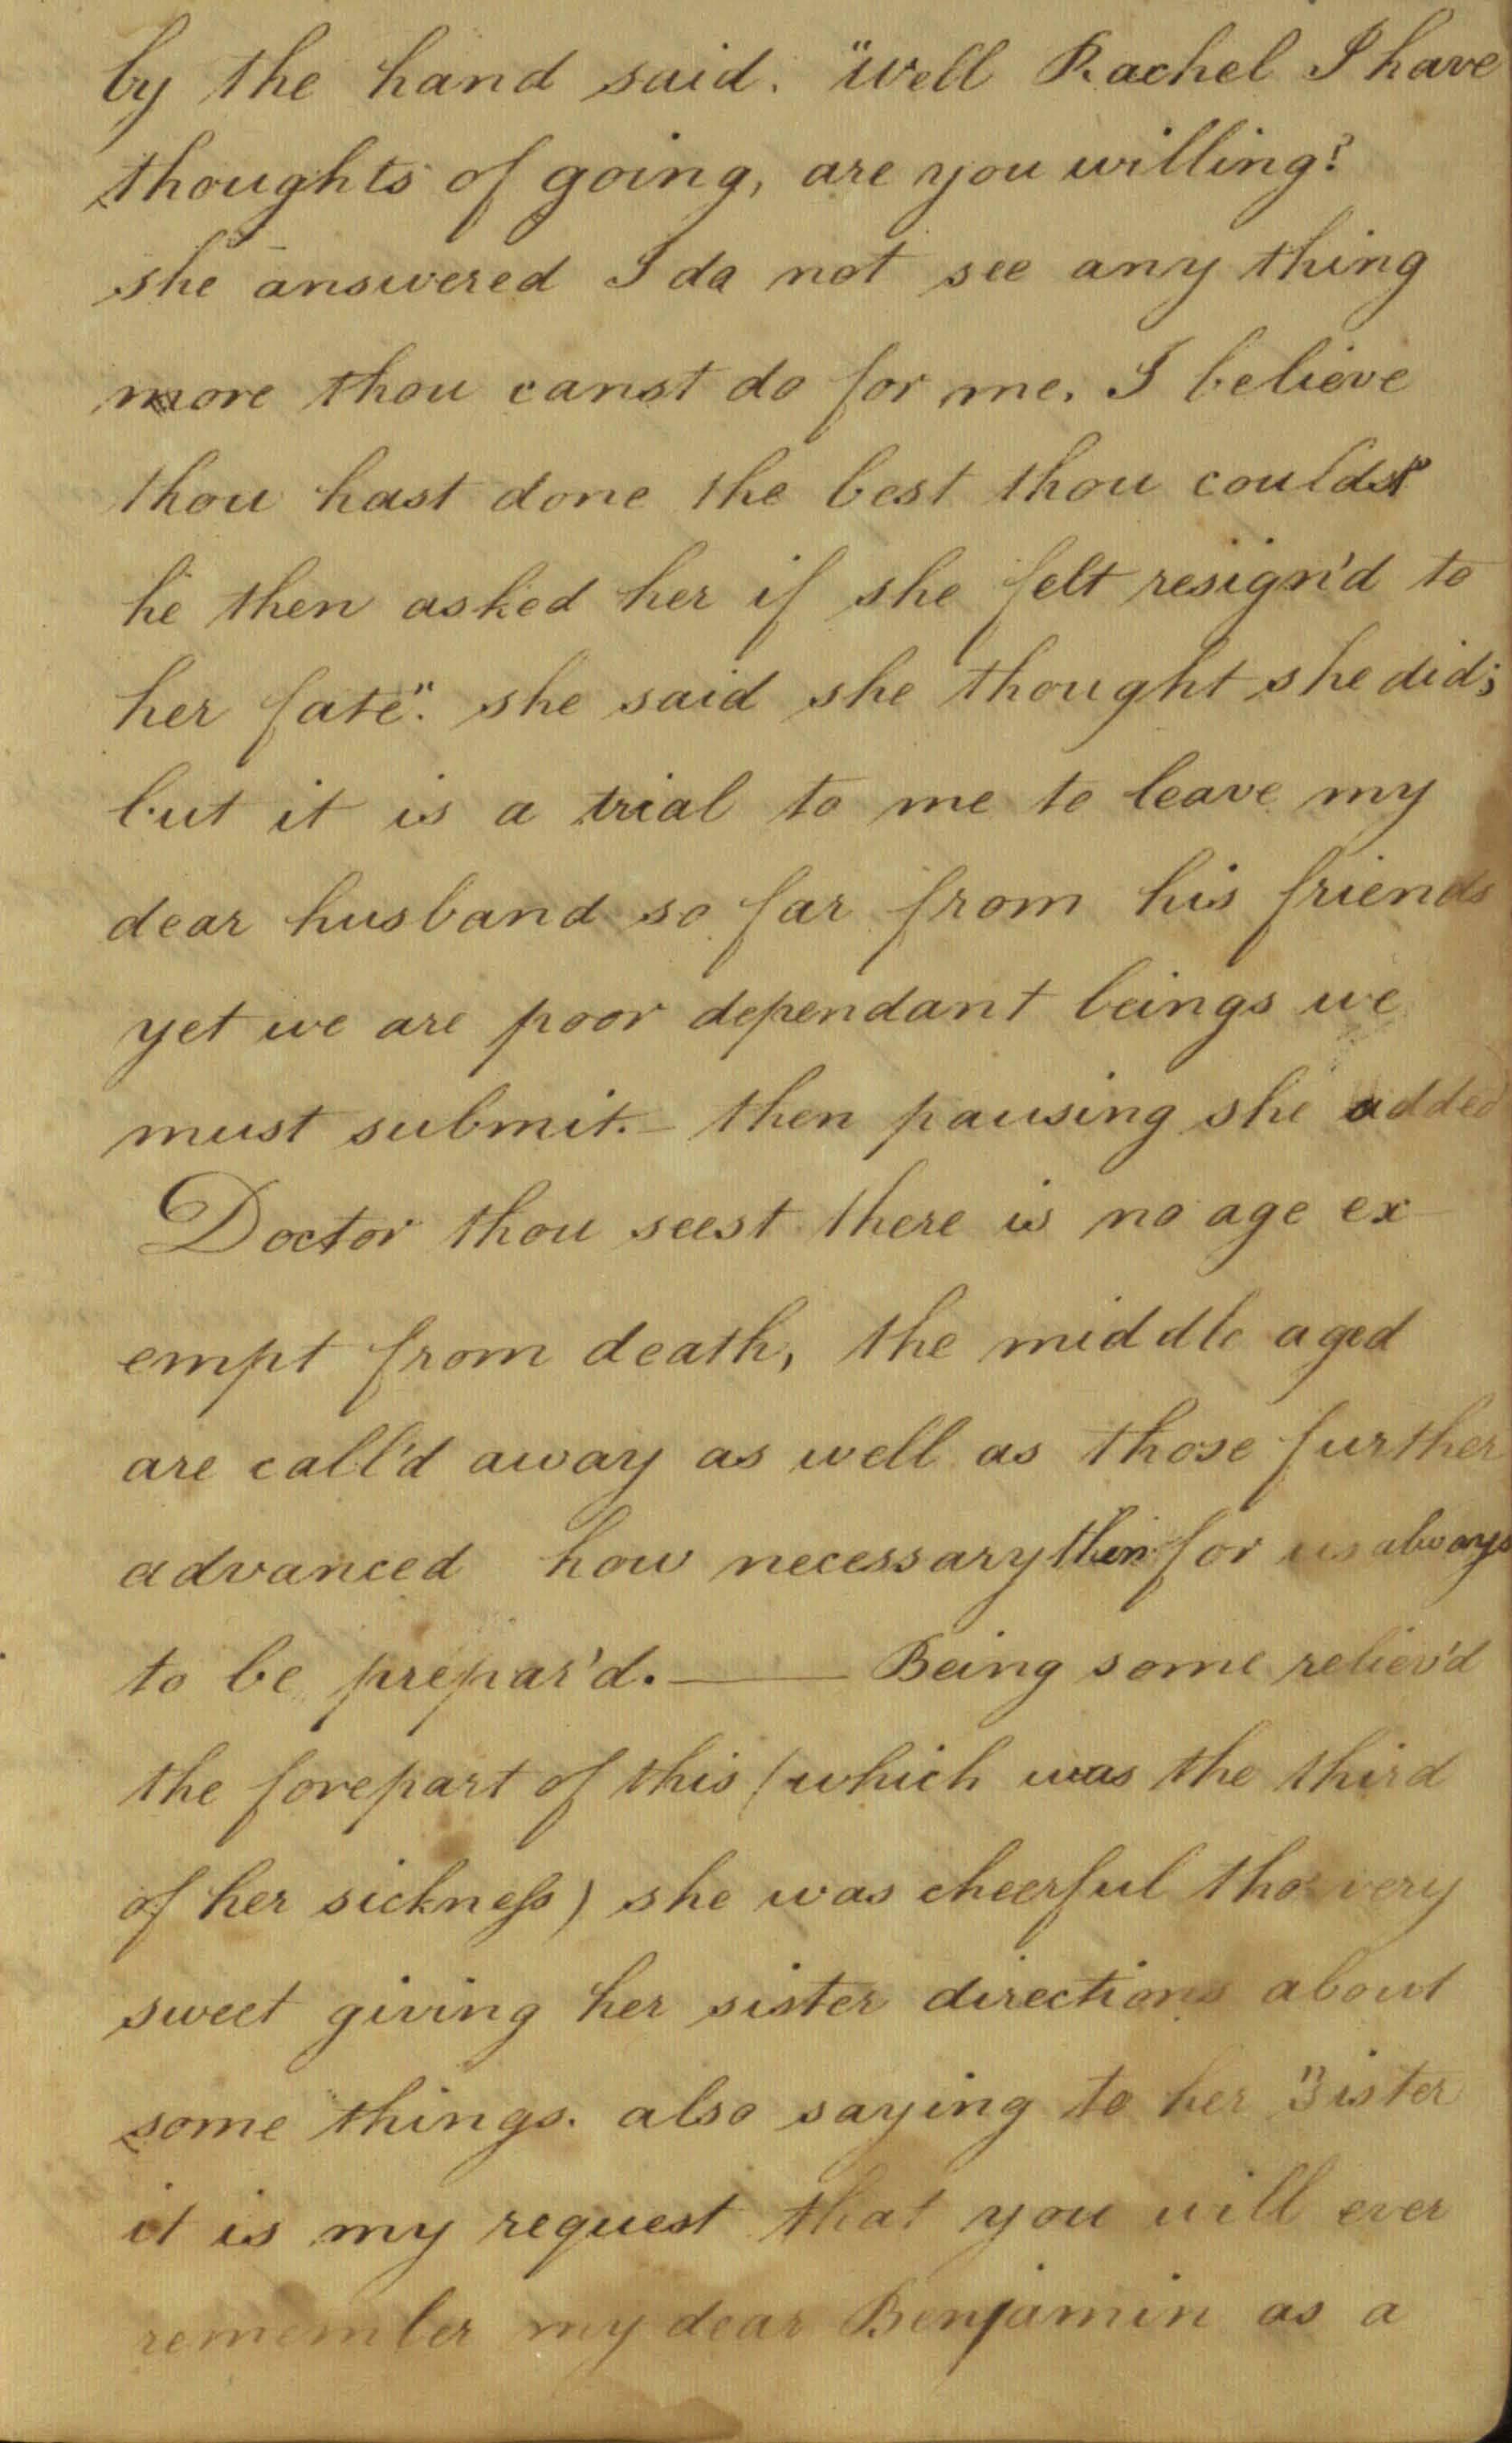 by the hand said. "Well Rachel I have
thoughts of going, are you willing?
she answered I do not see any thing
more thou canst do for me. I believe
thou hast done the best thou couldst
he then asked her if she felt resign'd to
her fate". she said she thought she did;
but it is a trial to me to leave my
dear husband so far from his friends
yet we are poor dependant beings we
must submit. – then pausing she added
Doctor thou seest there is no age ex
empt from death, the middle aged
are call'd away as well as those further
advanced how necessary then for us always
to be prepar'd. —— Being some reliev'd
the forepart of this (which was the third
of her sickneſs) she was cheerful tho very
sweet giving her sister directions about
some things. also saying to her "Sister
it is my request that you will ever
remember my dear Benjamin as a